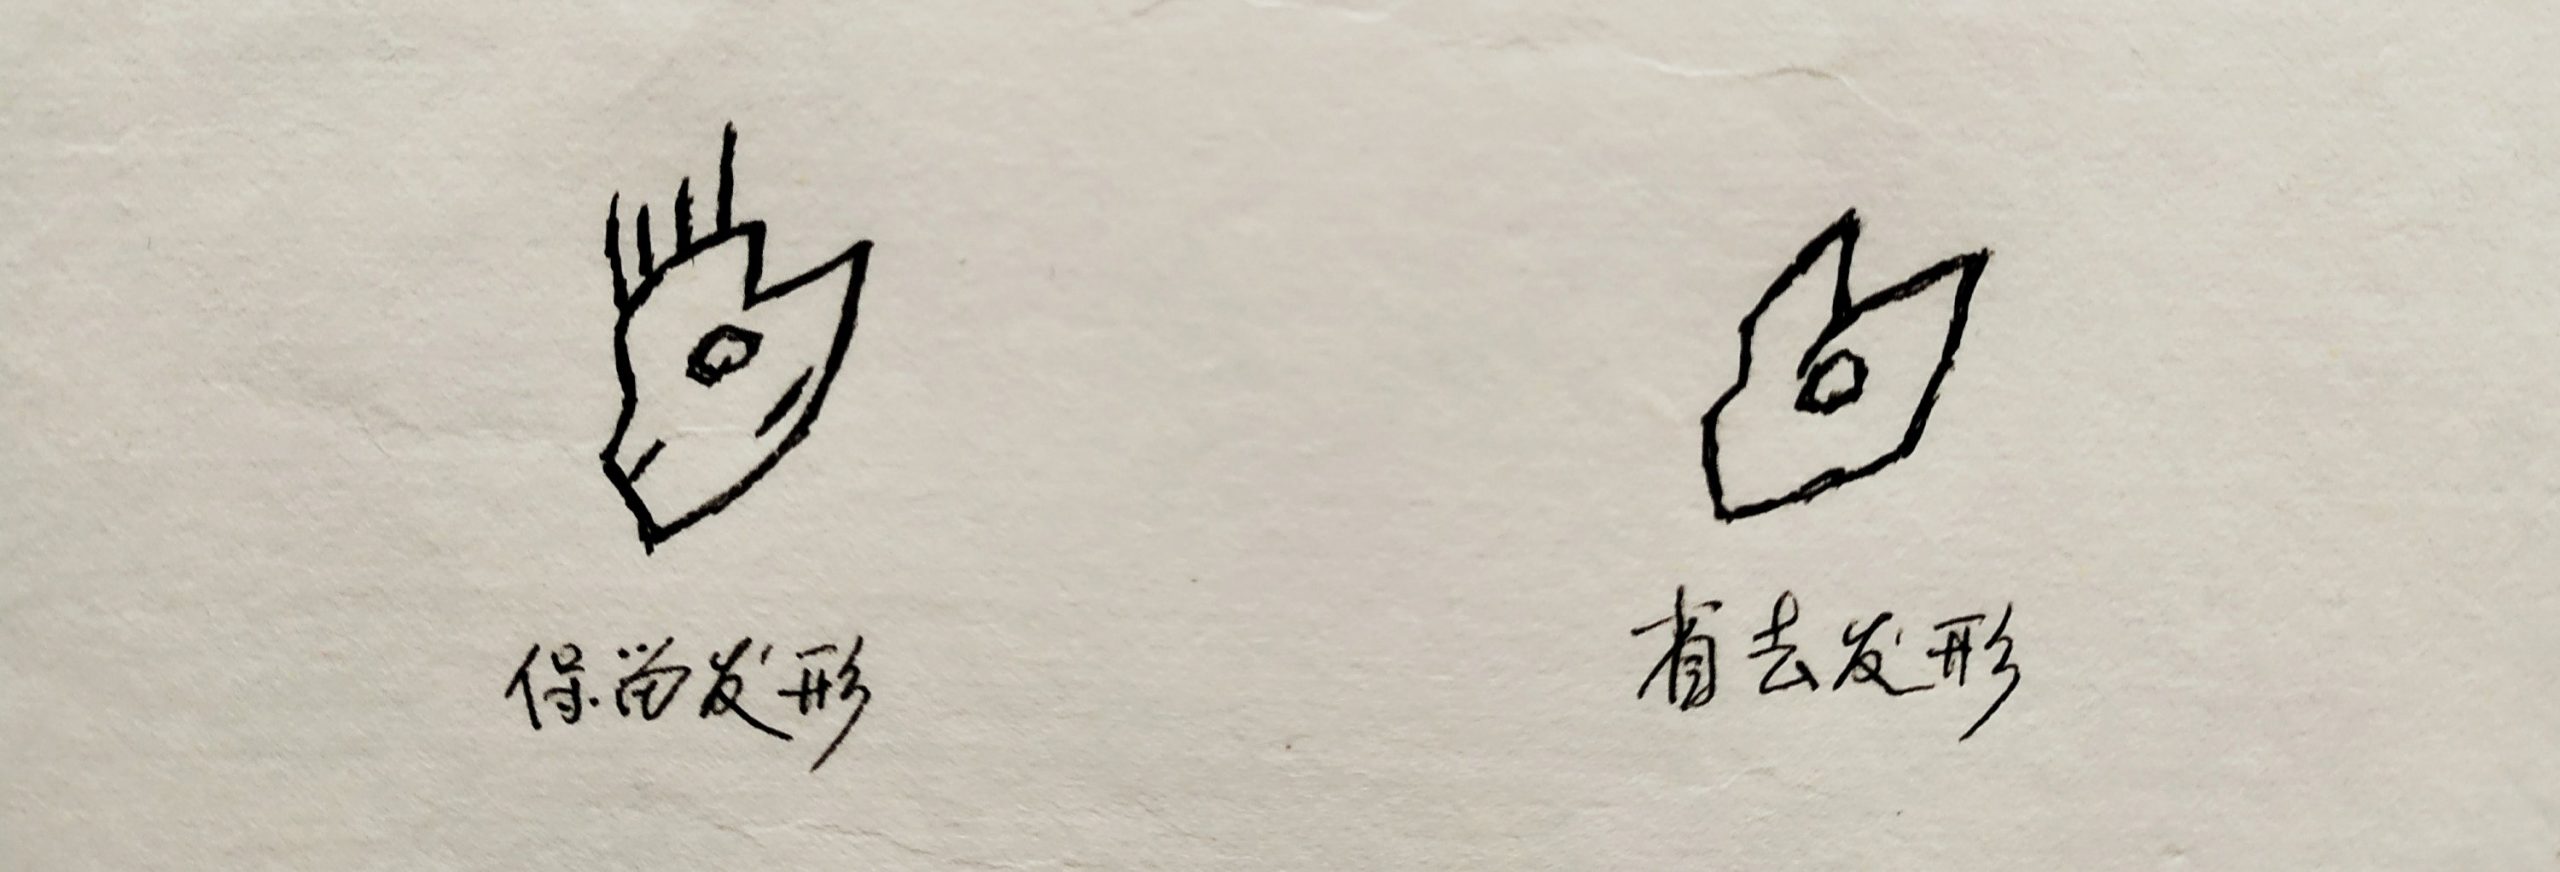 保留发形
省去发形